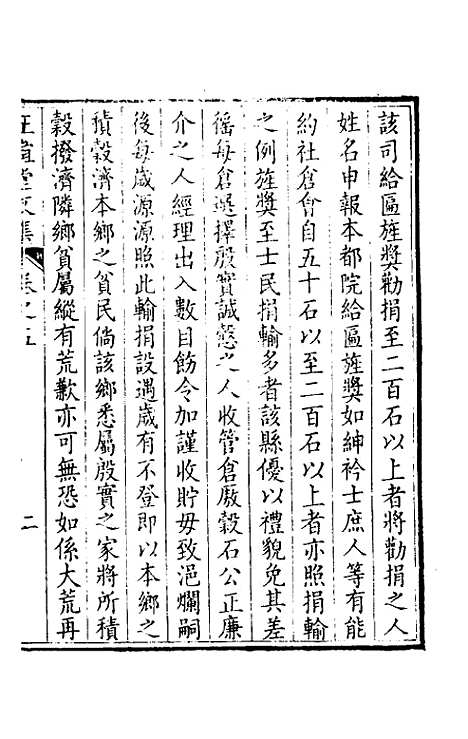 該司給匾旌獎勸捐至二百石以上者將勸捐之人
姓名申報本都院給匾旌獎如紳衿士庶人等有能
約社倉會自五十石以至二百石以上者亦照捐輸
之例旌獎至士民捐輸多者該縣優以禮貌免其差
徭每倉選擇殷實誠慤之人收管倉廒穀石公正廉
介之人經理出入數目飭令加謹收貯毋致浥爛嗣
後每歲源源照此輸捐設遇歲有不登即以本鄉之
積穀濟本鄉之貧民倘該鄉悉屬殷實之家將所積
穀撥濟隣鄉貧屬縱有荒歉亦可無恐如係大荒再
正誼堂文集 卷之五 二